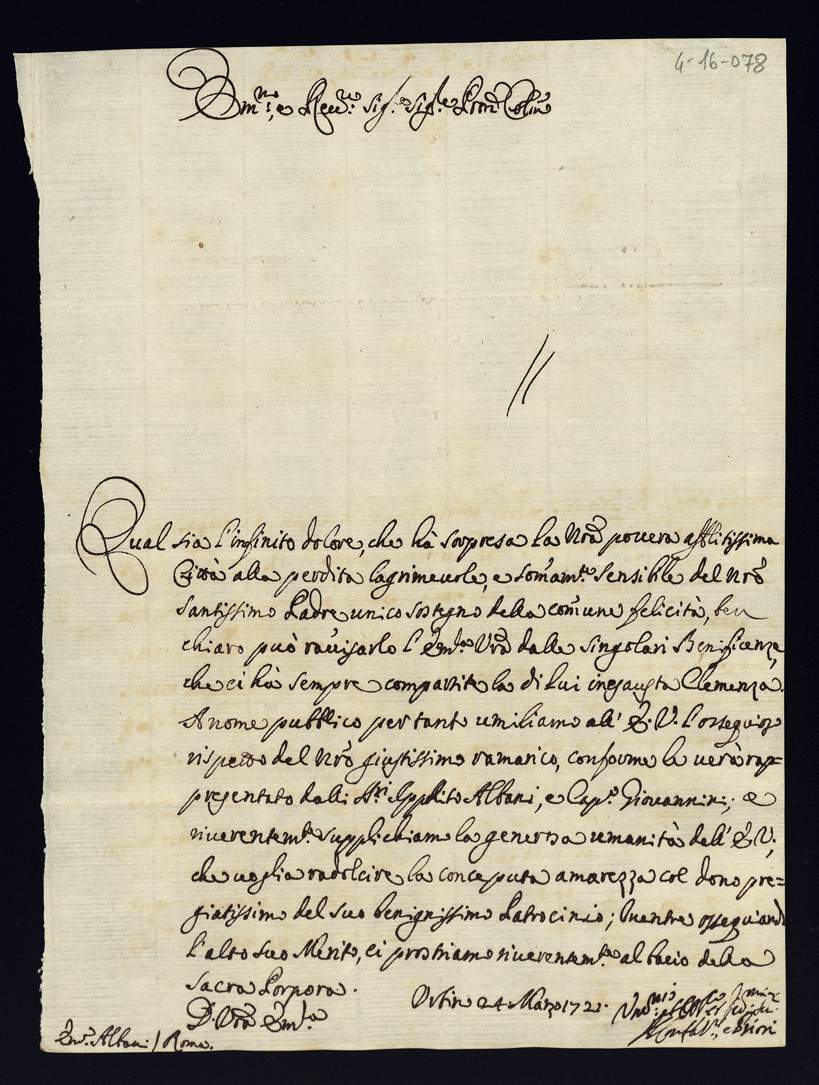 4-16-078
Em.mo, e Rev.mo Sig.re Sig.re Pron Colmo
Qual sia l'infinito dolore, che hà sorpresa la Nrã povera afflitissima
Città alla perdita lagrimevole, e som̃amte sensibile del Nrõ
Santissimo Padre unico sostegno della com̃une felicità, ben
chiaro può ravisarlo l'Em̃za Vrã dalle singolari Benificenze,
che ci hà sempre compartite la di lui inesausta Clemenza.
A nome pubblico pertanto umiliamo all' E. V. l'ossequioso
rispetto del Nrõ giustissimo ramarico, conforme le verrà rap=
presentato dalli Ippolito Albani, e Cap.o Giovannini; e
riverentemte supplichiamo la generosa umanità dell' E. V.,
che voglia radolcire la conceputa amarezza col dono pre=
giatissimo del suo benignissimo Patrocinio; Mentre ossequiando
l'alto suo Merito, ci prostriamo riverentemte al bacio della
Sacra Porpora.
D. Vrã Em̃za
Urbino 24 Marzo 1721.
Confal.re, e Priori
Em.o Albani / Roma.